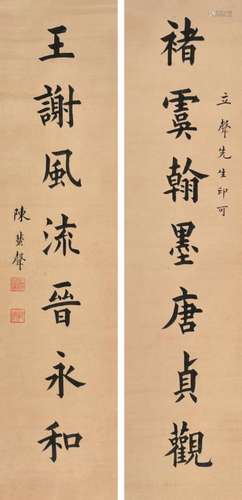 立聲先生印可
褚虞翰墨唐貞觀
王謝風流晉永和
陳蜚聲